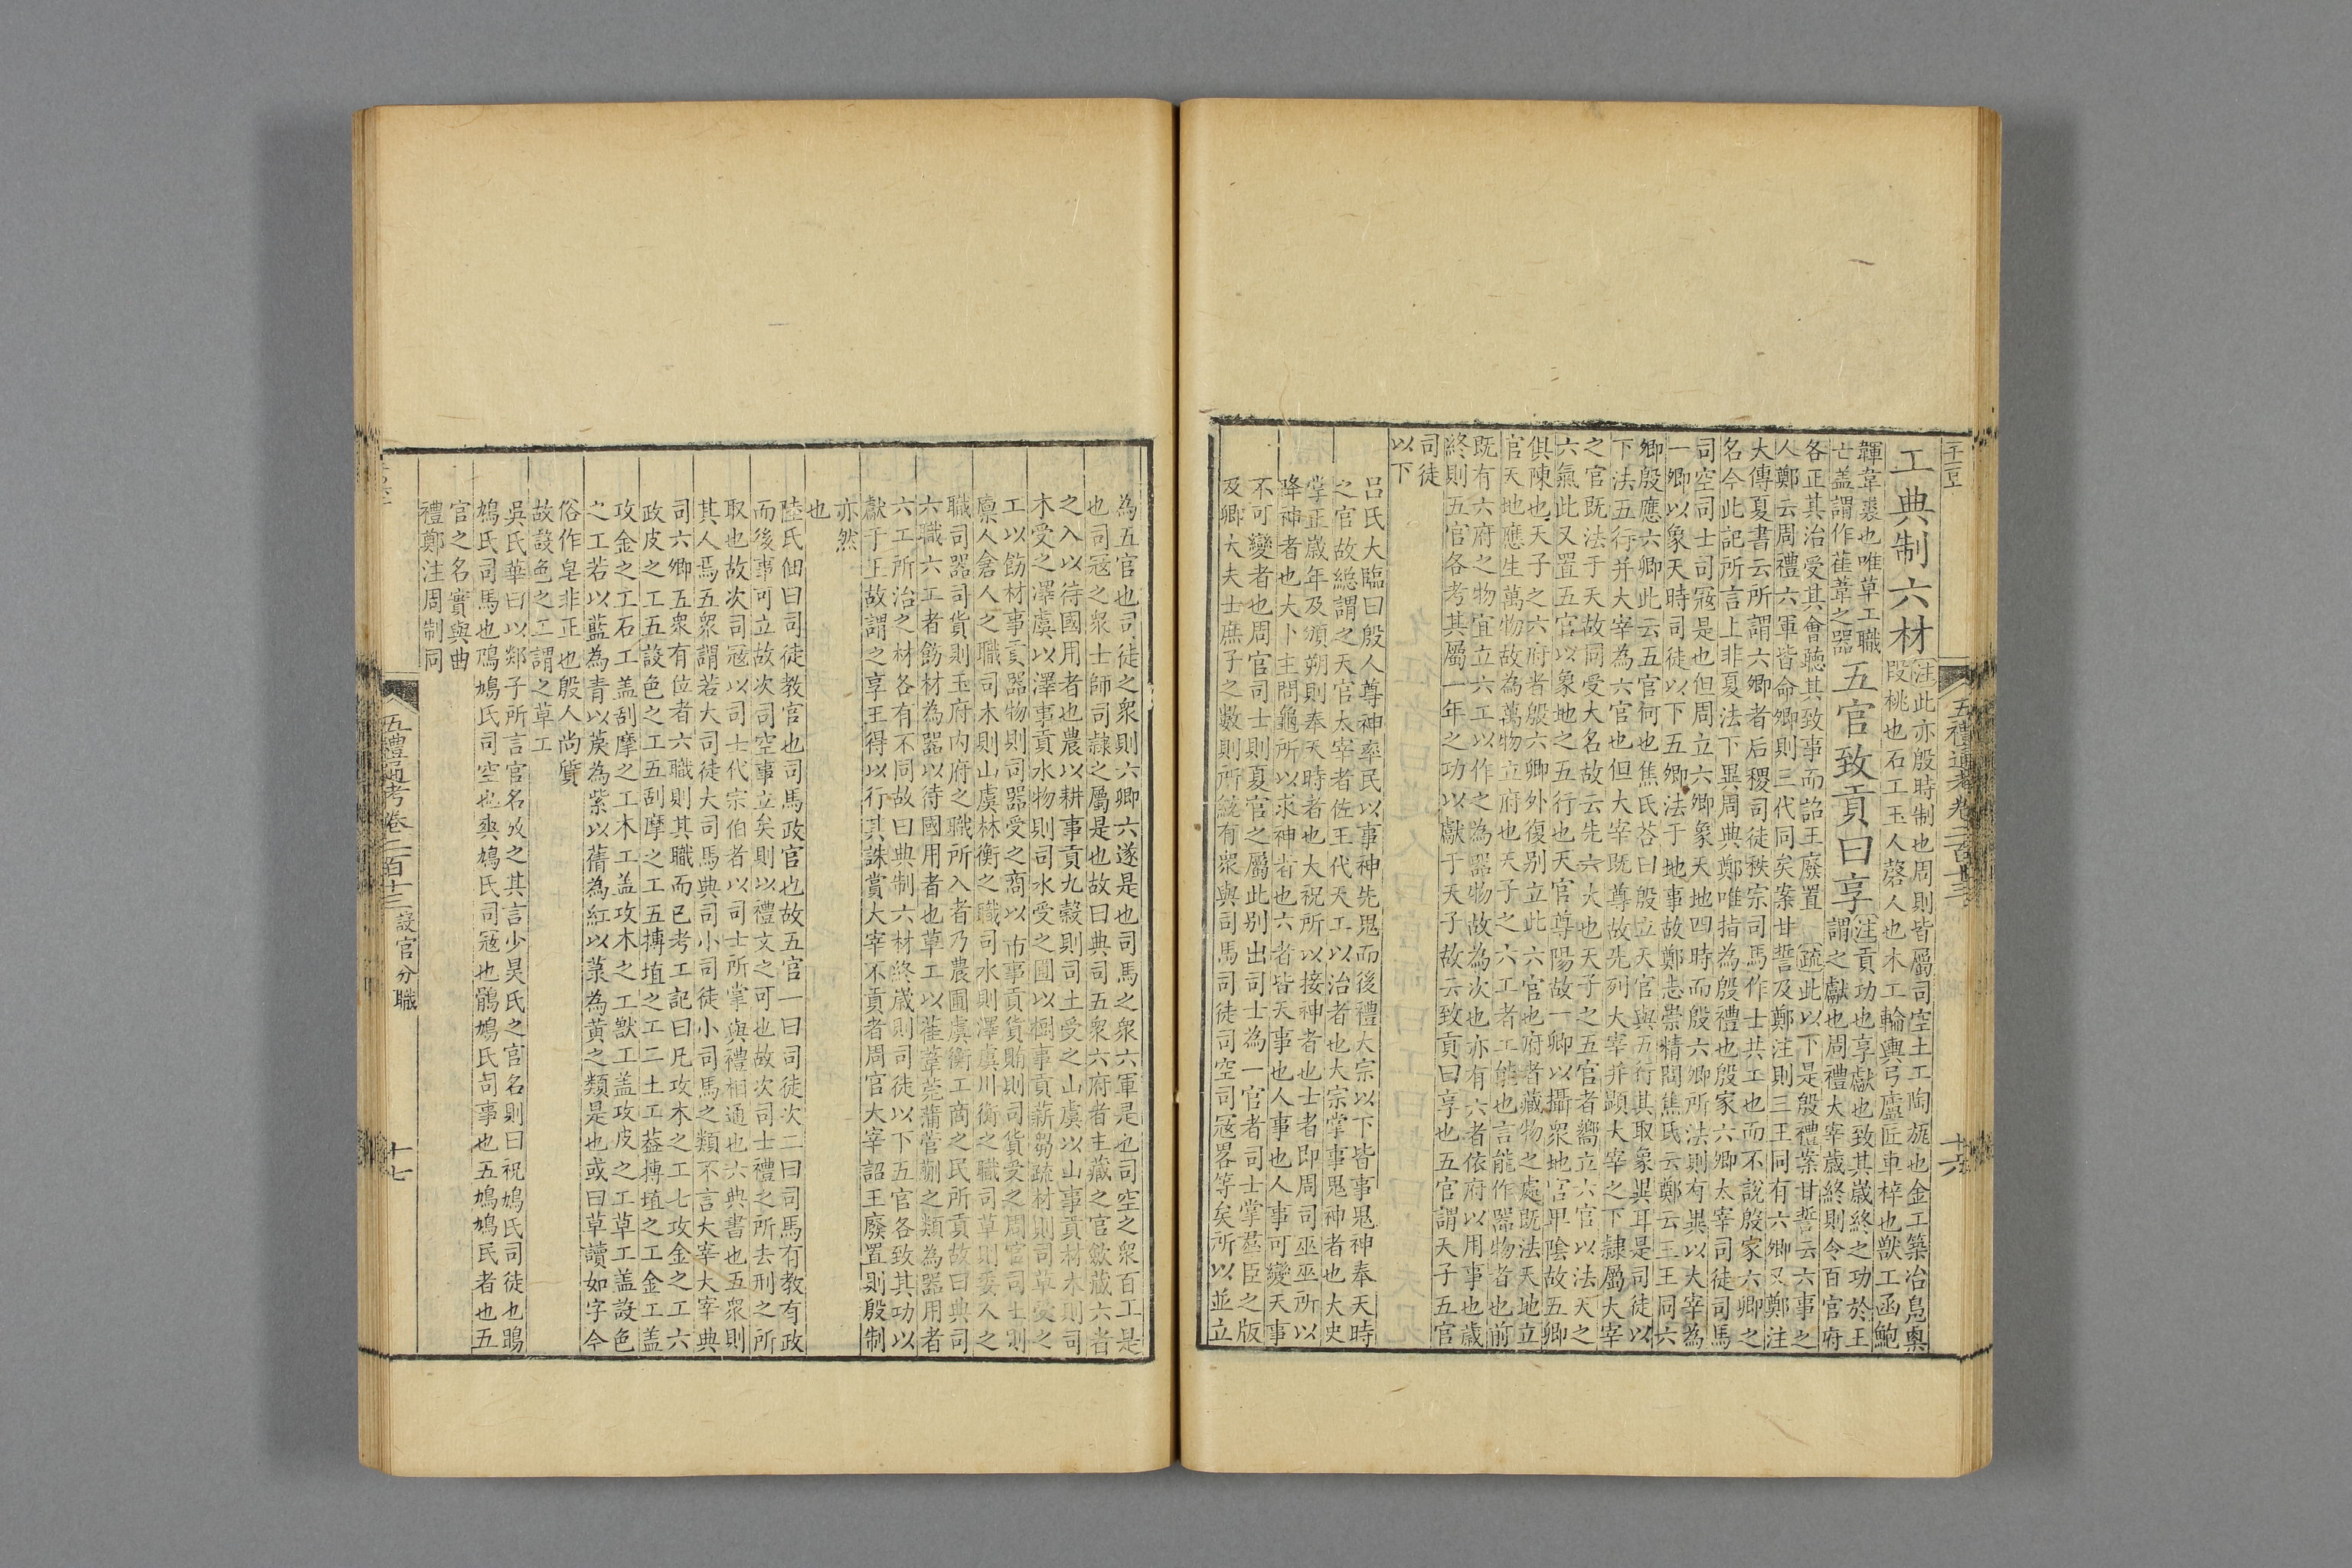 五禮通考卷二百十三
十六
工典制六材
注此亦殷時制也周則皆屬司空土工陶旊也金工築冶鳧㮚
段桃也石工玉人磬人也木工輪輿弓廬匠車梓也獸工函鮑
韗韋裘也唯草工職
亡蓋謂作萑葦之器
五官致貢曰享
注貢功也享獻也致其歲終之功於王
謂之獻也周禮大宰歲終則令百官府
各正其治受其會聽其致事而詔王廢置
疏此以下是殷禮案甘誓云六事之
人鄭云周禮六軍皆命卿則三代同矣案甘誓及鄭注則三王同有六卿又鄭注
大傳夏書云所謂六卿者后稷司徒秩宗司馬作士共工也而不說殷家六卿之
名今此記所言上非夏法下異周典鄭唯指為殷禮也殷家六卿太宰司徒司馬
司空司士司寇是也但周立六卿象天地四時而殷六卿所法則有異以大宰為
一卿以象天時司徒以下五卿法于地事故鄭志崇精問焦氏云鄭云三王同六
卿殷應六卿此云五官何也焦氏荅曰殷立天官與五行其取象異耳是司徒以
下法五行并大宰為六官也但大宰既尊故先列大宰并顯大宰之下隸屬大宰
之官既法于天故同受大名故云先六大也天子之五官者嚮立六官以法天之
六氣此又置五官以象地之五行也天官尊陽故一卿以攝衆地官卑陰故五卿
俱陳也天子之六府者殷六卿外復别立此六官也府者藏物之處既法天地立
官天地應生萬物故為萬物立府也天子之六工者工能也言能作器物者也前
既有六府之物宜立六工以作之為器物故為次也亦有六者依府以用事也歲
終則五官各考其屬一年之功以獻于天子故云致貢曰享也五官謂天子五官
司徒
以下
呂氏大臨曰殷人尊神率民以事神先鬼而後禮大宗以下皆事鬼神奉天時
之官故總謂之天官太宰者佐王代天工以治者也大宗掌事鬼神者也大史
掌正歲年及頒朔則奉天時者也大祝所以接神者也士者即周司巫巫所以
降神者也大卜主問龜所以求神者也六者皆天事也人事也人事可變天事
不可變者也周官司士則夏官之屬此别出司士為一官者司士掌羣臣之版
及卿大夫士庶子之數則所統有衆與司馬司徒司空司寇畧等矣所以並立
為五官也司徒之衆則六卿六遂是也司馬之衆六軍是也司空之衆百工是
也司冦之衆士師司隸之屬是也故曰典司五衆六府者主藏之官斂藏六者
之入以待國用者也農以耕事貢九穀則司土受之山虞以山事貢材木則司
木受之澤虞以澤事貢水物則司水受之圃以樹事貢薪芻疏材則司草受之
工以飭材事貢器物則司器受之商以市事貢貨賄則司貨受之周官司土則
廩人倉人之職司木則山虞林衡之職司水則澤虞川衡之職司草則委人之
職司器司貨則玉府內府之職所入者乃農圃虞衡工商之民所貢故曰典司
六職六工者飭材為器以待國用者也草工以萑葦莞蒲菅蒯之類為器用者
六工所治之材各有不同故曰典制六材終歲則司徒以下五官各致其功以
獻于王故謂之享王得以行其誅賞大宰不貢者周官大宰詔王廢置則殷制
亦然
也
陸氏佃曰司徒教官也司馬政官也故五官一曰司徒次二曰司馬有教有政
而後事可立故次司空事立矣則以禮文之可也故次司士禮之所去刑之所
取也故次司寇以司士代宗伯者以司士所掌與禮相通也六典書也五衆則
其人焉五衆謂若大司徒大司馬典司小司徒小司馬之類不言大宰大宰典
司六卿五衆有位者六職則其職而已考工記曰凡攻木之工七攻金之工六
政皮之工五設色之工五刮摩之工五摶埴之工二土工葢摶埴之工金工盖
攻金之工石工盖刮摩之工木工盖攻木之工獸工盖攻皮之工草工盖設色
之工若以藍為青以茛為紫以蒨為紅以菉為黄之類是也或曰草讀如字今
俗作皂非正也殷人尚質
故設色之工謂之草工
吳氏華曰以郯子所言官名攷之其言少昊氏之官名則曰祝鳩氏司徒也鴡
鳩氏司馬也鳲鳩氏司空也爽鳩氏司寇也鶻鳩氏司事也五鳩鳩民者也五
官之名實與曲
禮鄭注周制同
五禮通考卷二百十三
設官分職
十七